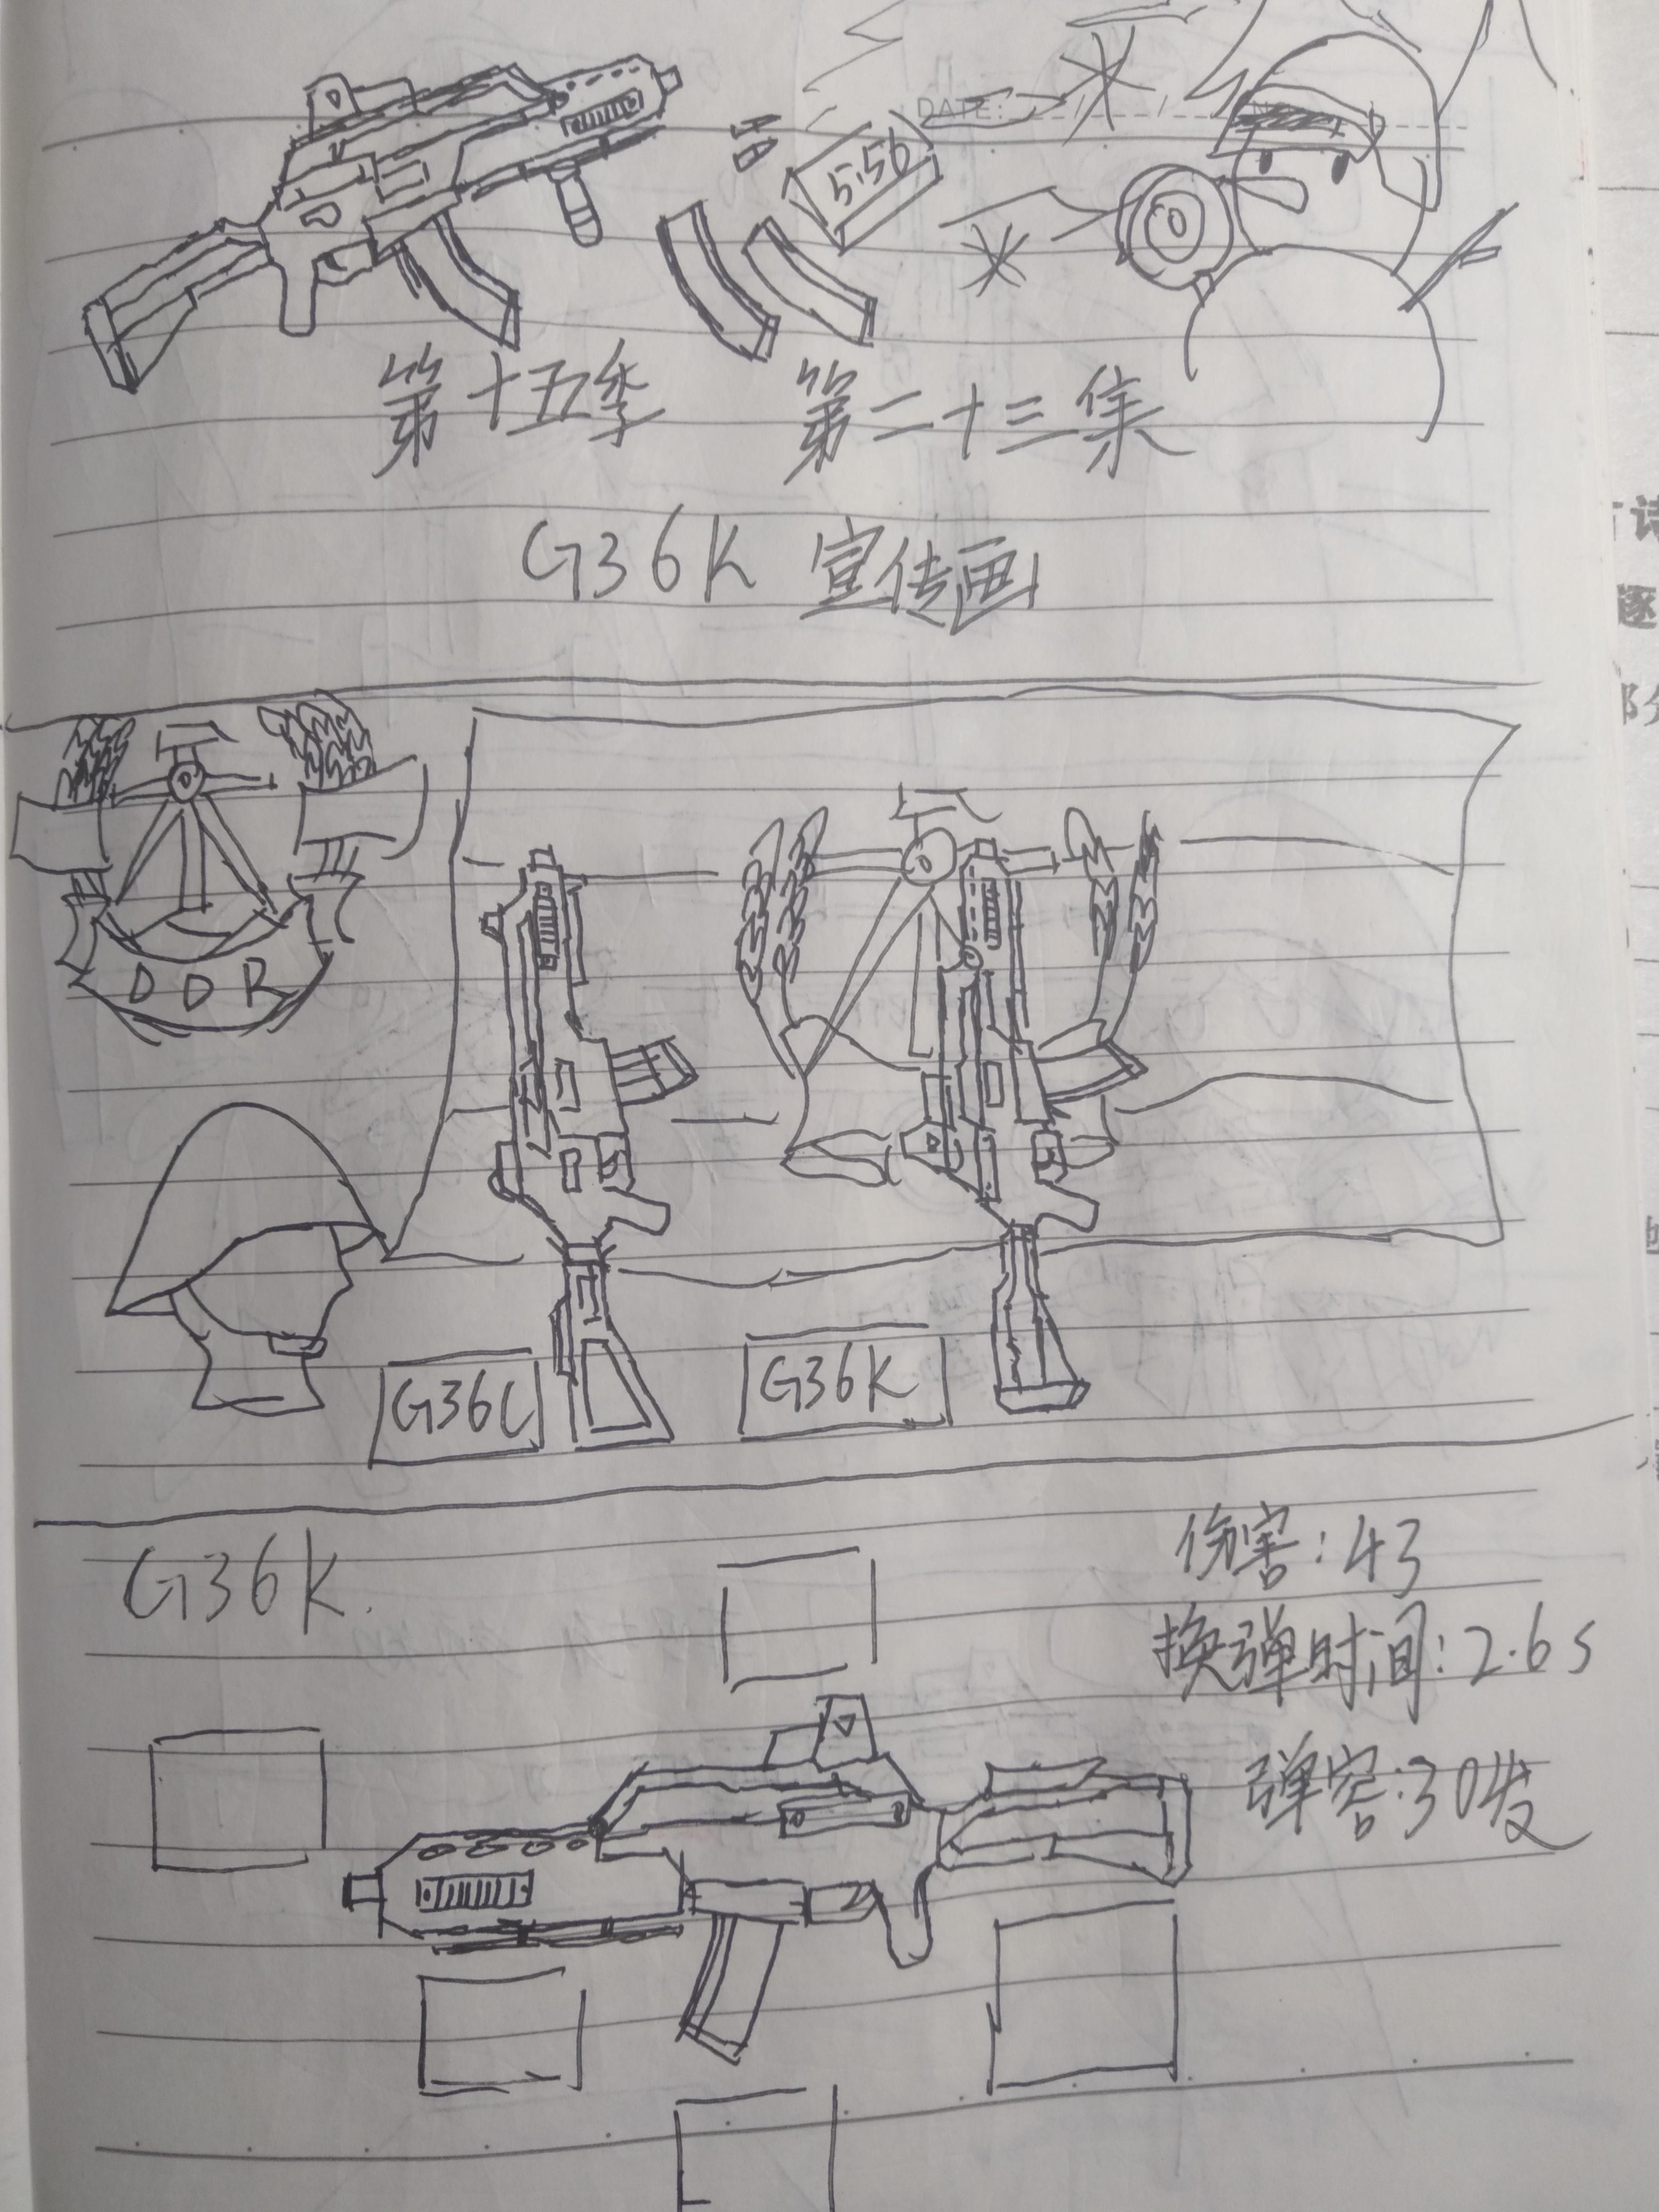 DATE:
5.56
第十五季 第二十三集
G36K 宣传画
DDR
G36C
G36K
G36K.
伤害:43
换弹时间:2.6s
弹容:30发
诗
逐
部分